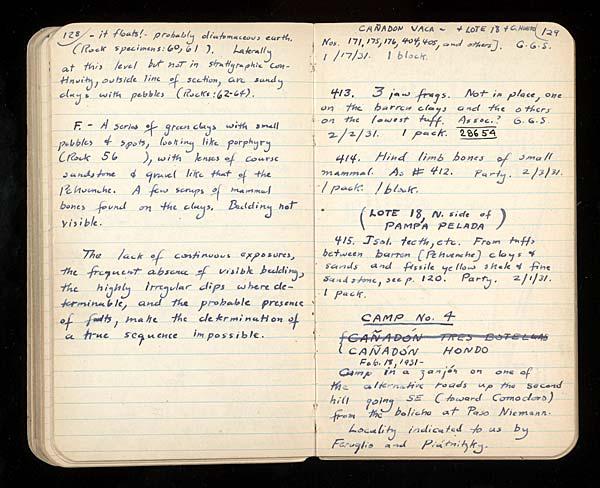 128
- it floats!- probably diatomaceous earth.
(Rock specimens: 60, 61). Laterally
at this level but not in stratigraphic con-
tinuity, outside line of section, are sandy
clays with pebbles (Rocks: 62-64).
F. - A series of green clays with small
pebbles & spots, looking like porphyry
(Rock 56 ), with lenses of course
sandstone & gravel like that of the
Pehuenche. A few scraps of mammal
bones found on the clays. Bedding not
visible.
The lack of continuous exposures,
the frequent absence of visible bedding,
the highly irregular dips where de-
terminable, and the probable presence
of faults, make the determination of
a true sequence impossible.
CAÑADON VACA - + LOTE 18 + C. HONDO
129
Nos. 171, 175, 176, 404, 405, and others]. G.G.S.
1/17/31. 1 block.
413. 3 jaw frags. Not in place, one
on the barren clays and the others
on the lowest tuff. Assoc.? G.G.S.
2/2/31. 1 pack. 28654
414. Hind limb bones of small
mammal. As # 412. Party. 2/3/31.
1 pack. 1 block.
(LOTE 18, N. side of
PAMPA PELADA)
415. Isol. teeth, etc. From tuffs
between barren (Pehuenche) clays &
sands and fissile yellow shale & fine
sandstone, see p. 120. Party. 2/1/31.
1 pack.
CAMP No. 4
CAÑADÓN TRES BOTELLAS
CAÑADÓN HONDO
Feb. 18, 1931-
Camp in a zanjón on one of
the alternative roads up the second
hill going SE (toward Comodoro)
from the boliche at Paso Niemann.
Locality indicated to us by
Feruglio and Piátnitzky.